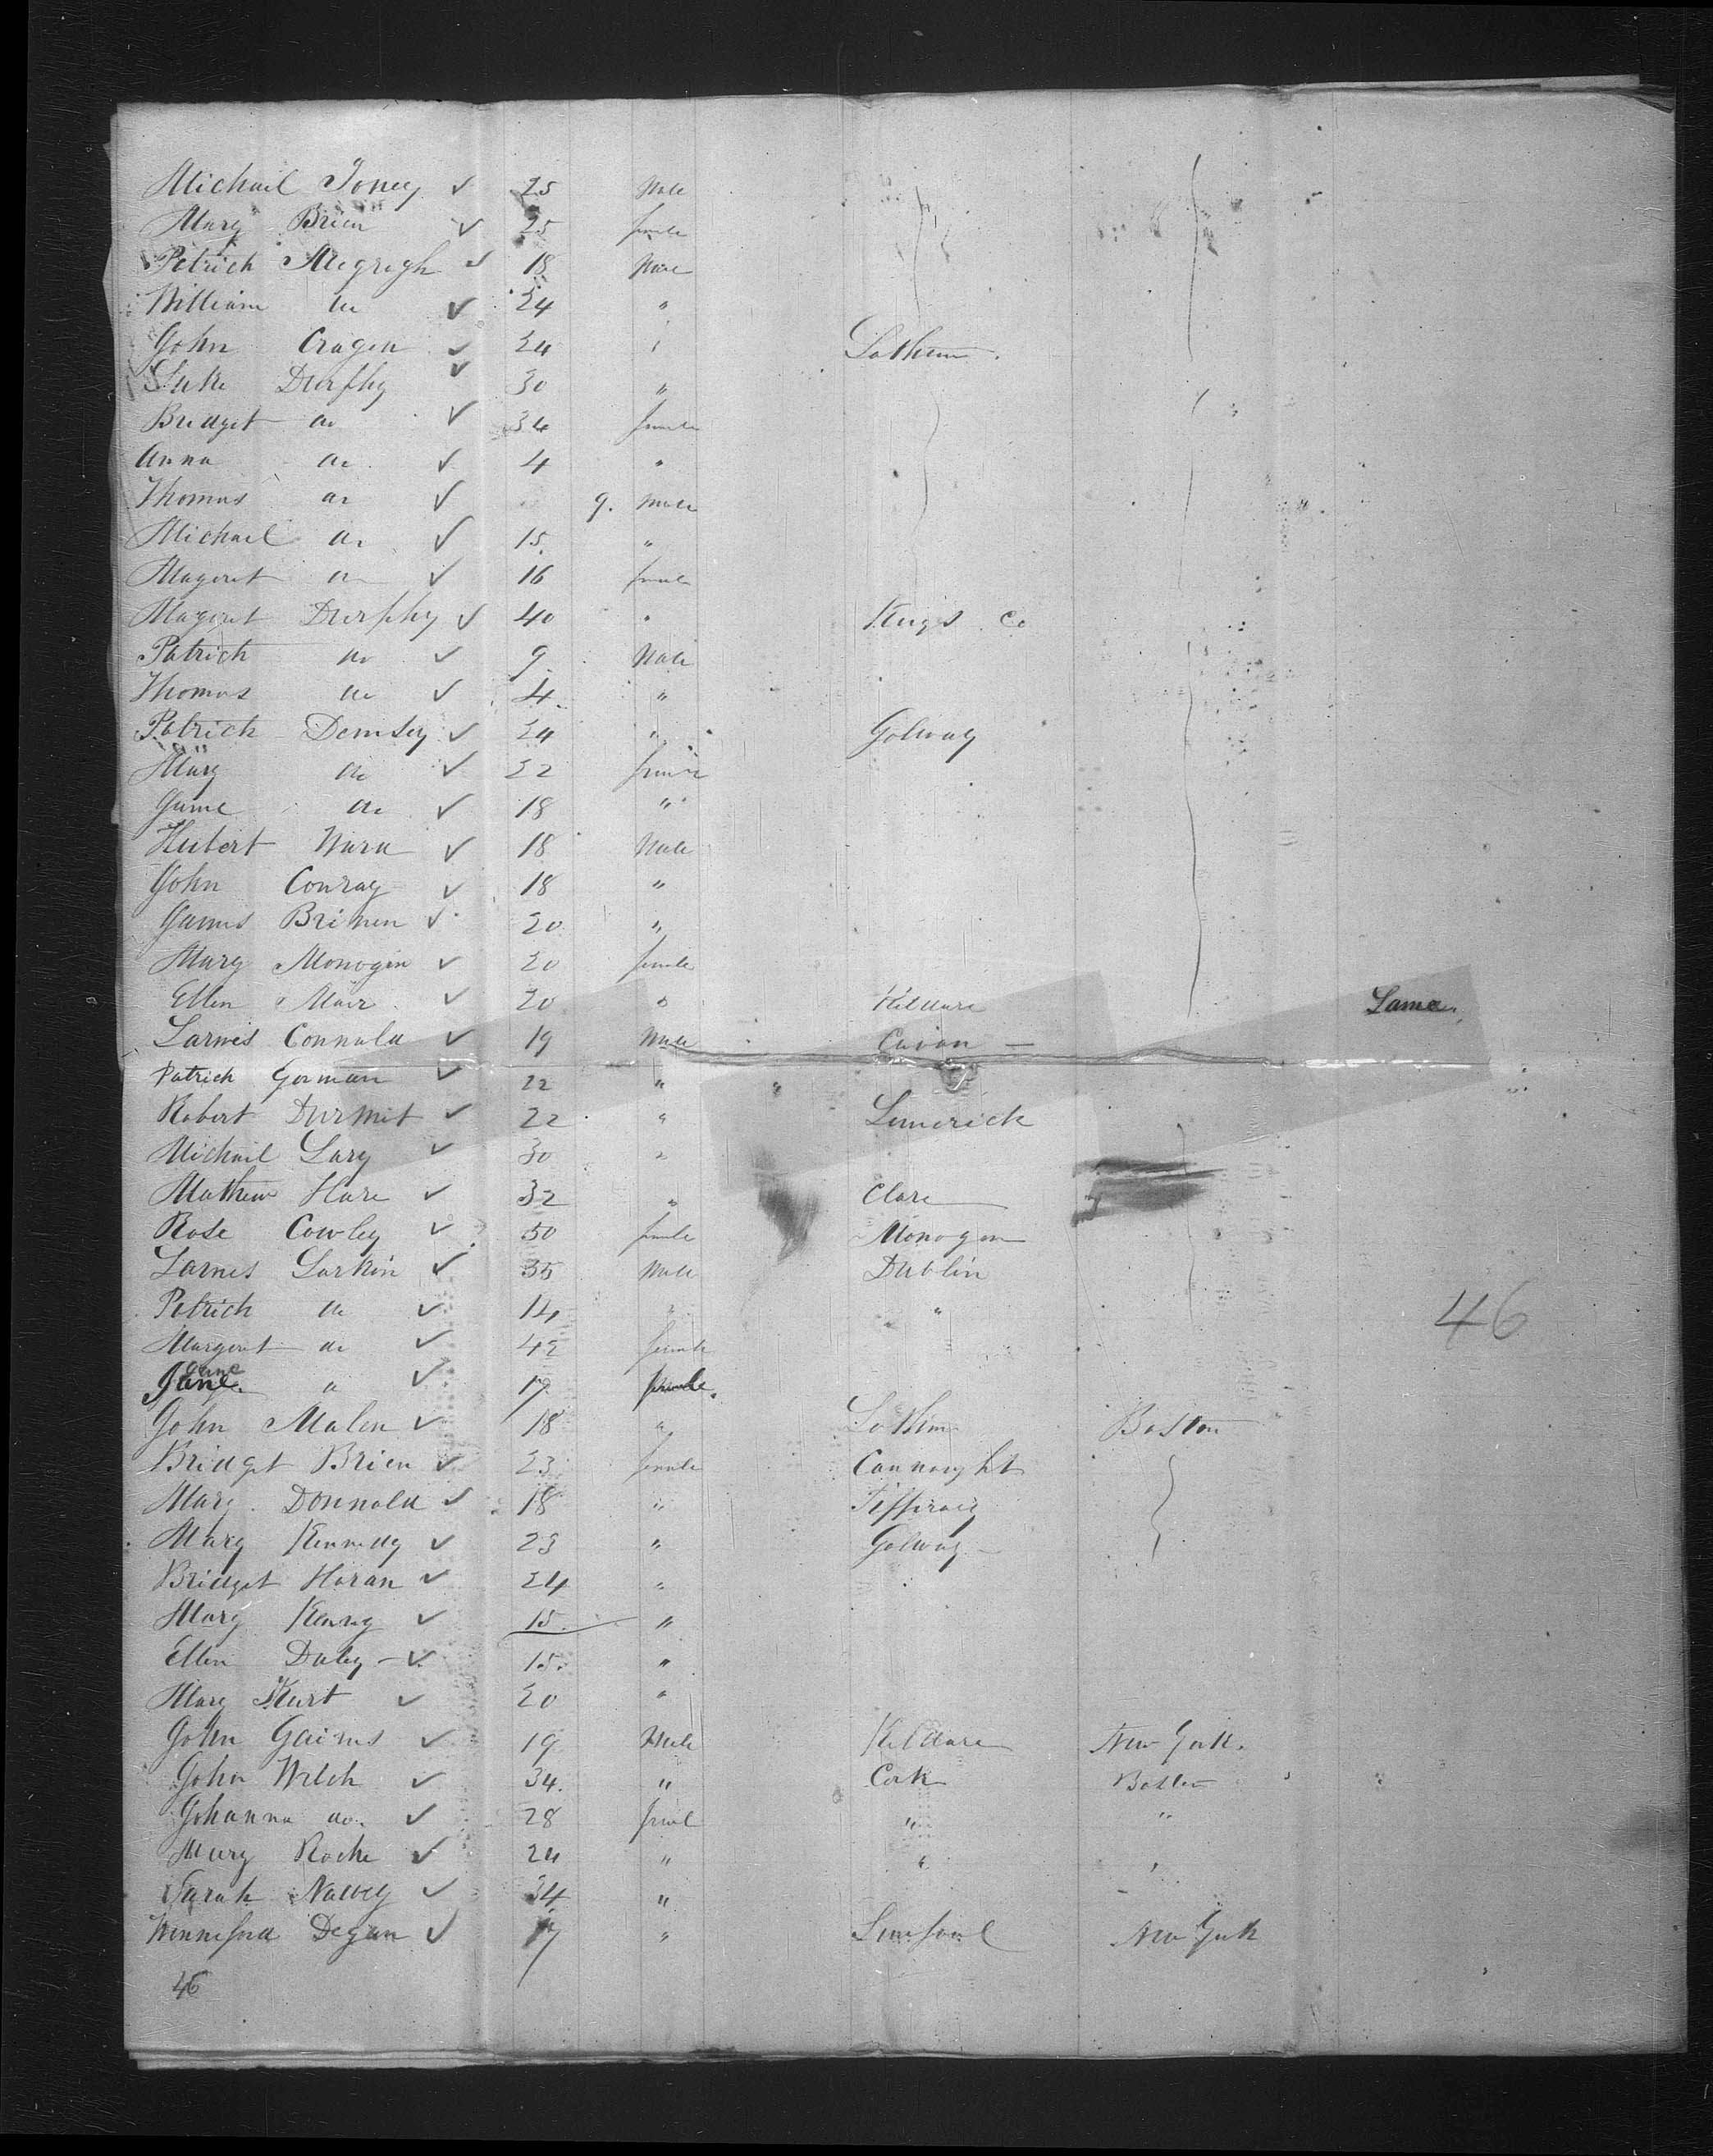 Michael Toney ✓ 25 Male
Mary Brien ✓ 25 female
Patrick Megregh ✓ 18 Male
William do ✓ 24 "
John Cragen ✓ 24 " Lathum.
Luke Durphy ✓ 30 "
Bridget do ✓ 34 female
Anna do ✓ 4 "
Thomas do ✓ 9. Male
Michael do ✓ 15. "
Magaret do ✓ 16 female
Magaret Durphy ✓ 40 " Kings Co
Patrick do ✓ 9 Male
Thomas do ✓ 4 "
Patrick Demsey ✓ 24 " Golway
Mary do ✓ 22 female
Jame do ✓ 18 "
Hubert Ward ✓ 18 Male
John Conray ✓ 18 "
James Brinen ✓ 20 "
Mary Monogin ✓ 20 female
Ellen Mair ✓ 20 " Kildare Lame
James Connald ✓ 19 Male Cavan —
Patrick Gorman ✓ 22 " "
Robert Durmit ✓ 22 " Limerick
Michail Lary ✓ 30 "
Mathew Hare ✓ 32 " Clare
Rose Cowley ✓ 50 female Monogan
James Larkin ✓ 35 Male Dublin
Patrick do ✓ 14 " "
46
Margaret do ✓ 42 female
Jane
Jane. do ✓ 17 female.
John Malen ✓ 18 " Boston
Bridget Brien ✓ 23 female Connaught
Mary Donnald ✓ 18 " Tipperary
Mary Kennedy ✓ 23 " Golway
Bridget Horan ✓ 24 "
Mary Kenny ✓ 15 "
Ellen Daley ✓ 15. "
Mary Kurt ✓ 20 "
John Gairns ✓ 19 Male Kildare New York.
John Welch ✓ 34. " Cork Boston
Johanna do. ✓ 28 femal " "
Mary Roche ✓ 24 " " "
Sarah ✓ 34 "
Winnefred Degan ✓ 17 " New York
46